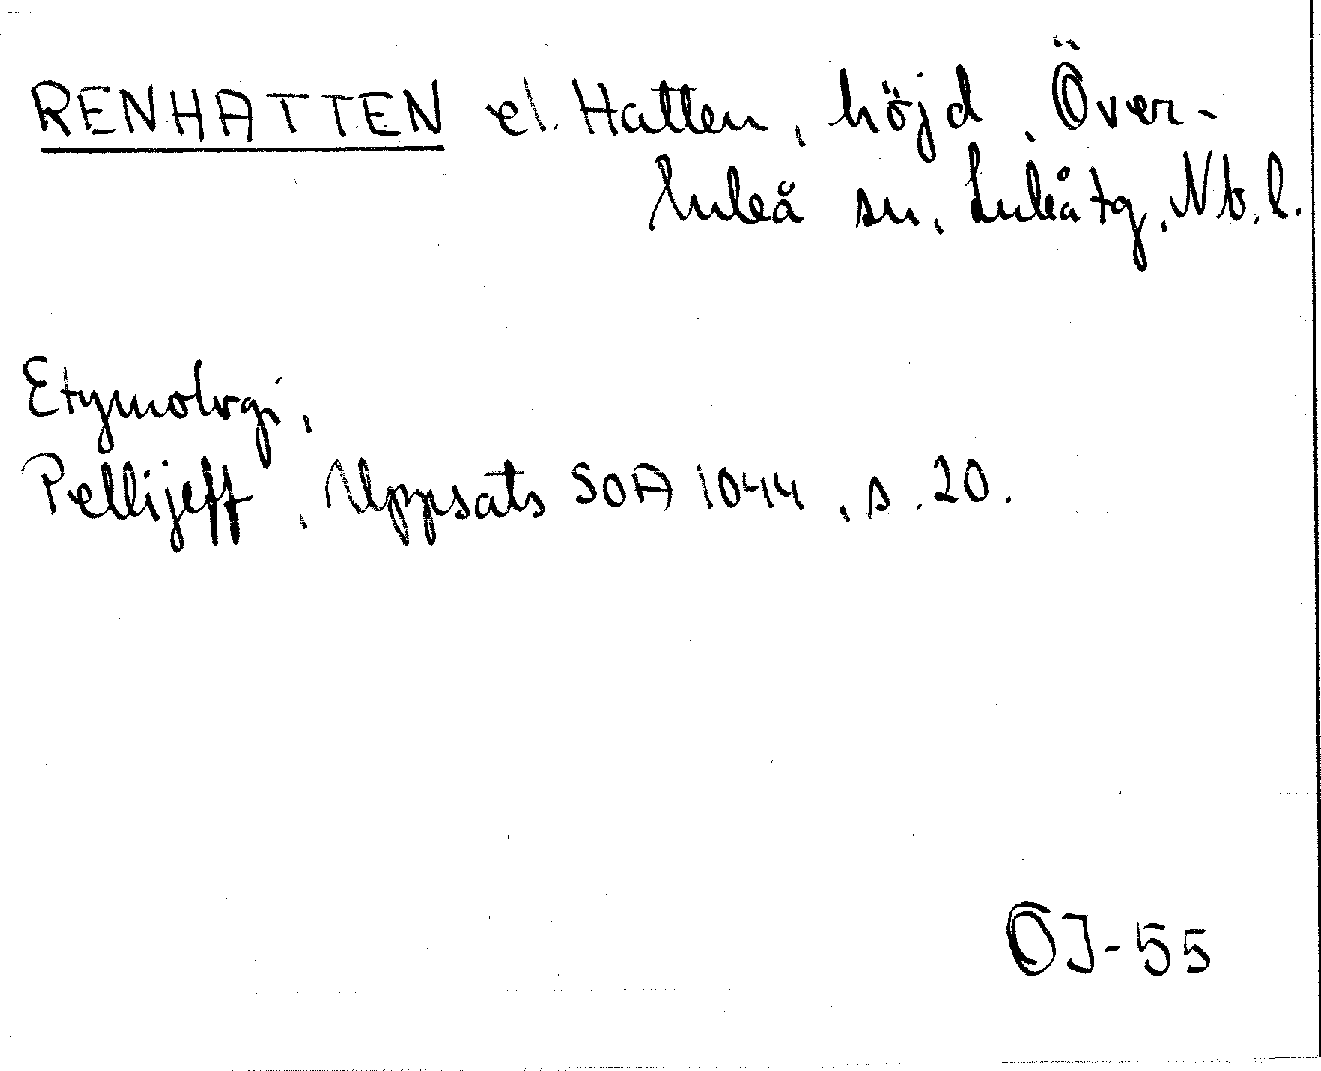 RENHATTEN el. Hatten, höjd, Över-
luleå sn, Luleå tg, Nb. l.
Etymologi,
Pellijeff, Uppsats SOA 1044, s. 20.
OJ-55